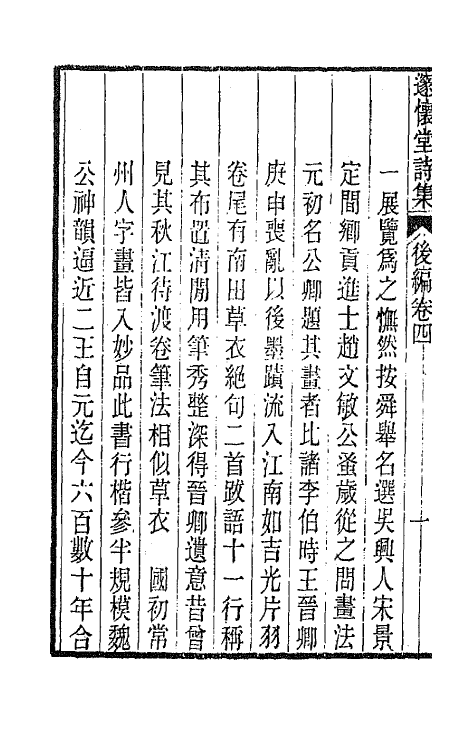 邃懷堂詩集 後編卷四 一
一展覽爲之憮然按舜舉名選吳興人宋景
定間鄉貢進士趙文敏公蚤歲從之問畫法
元初名公卿題其畫者比諸李伯時王晉卿
庚申喪亂以後墨蹟流入江南如吉光片羽
卷尾有南田草衣絕句二首跋語十一行稱
其布置淸閒用筆秀整深得晉卿遺意昔曾
見其秋江待渡卷筆法相似草衣 國初常
州人字畫皆入妙品此書行楷參半規模魏
公神韻逼近二王自元迄今六百數十年合